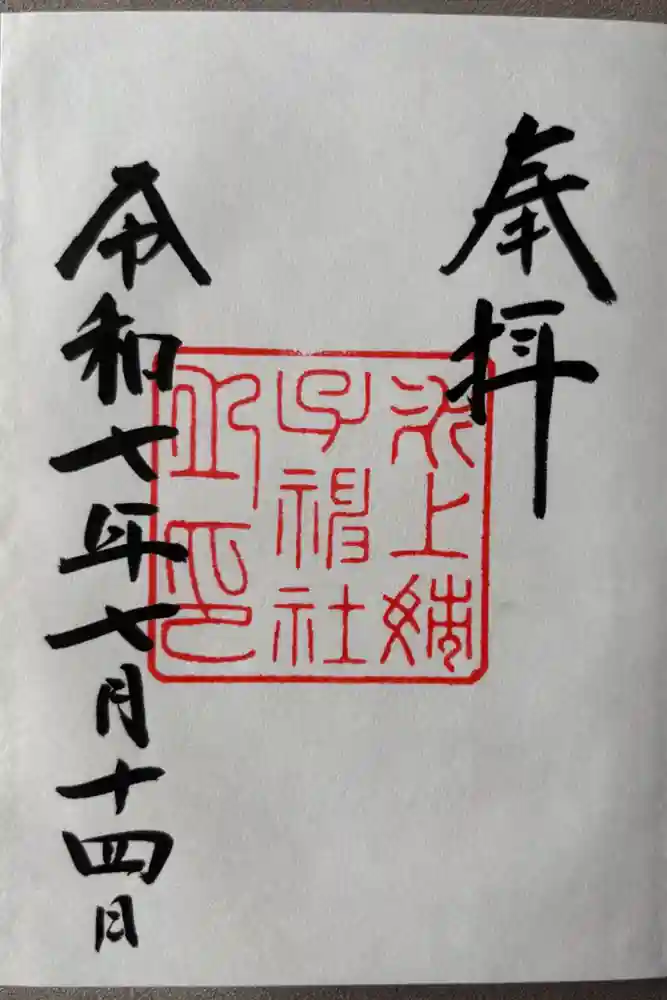 奉拝
氷上姉
子神社
之印
令和七年七月十四日